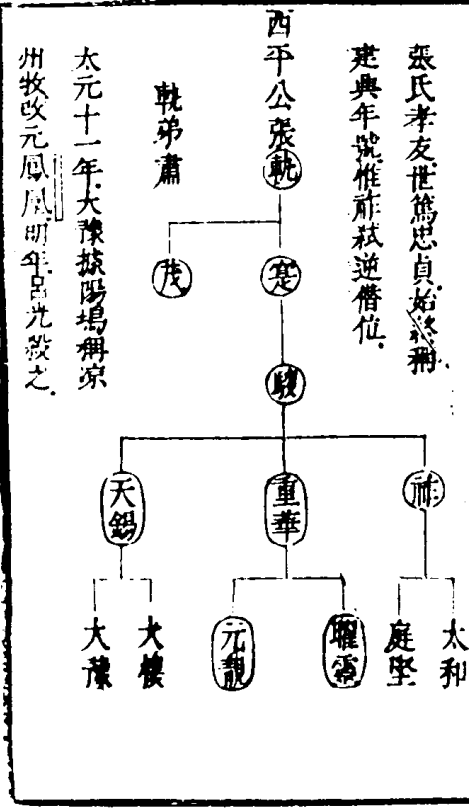 張氏孝友世篤忠貞始終稱
建興年號惟祚弑逆僭位
西平公張軌
軌弟肅
寔
茂
駿
祚
重華
天錫
太和
庭堅
曜靈
元靚
大懷
大豫
太元十一年大豫據陽塢稱涼
州牧改元鳳凰明年呂光殺之